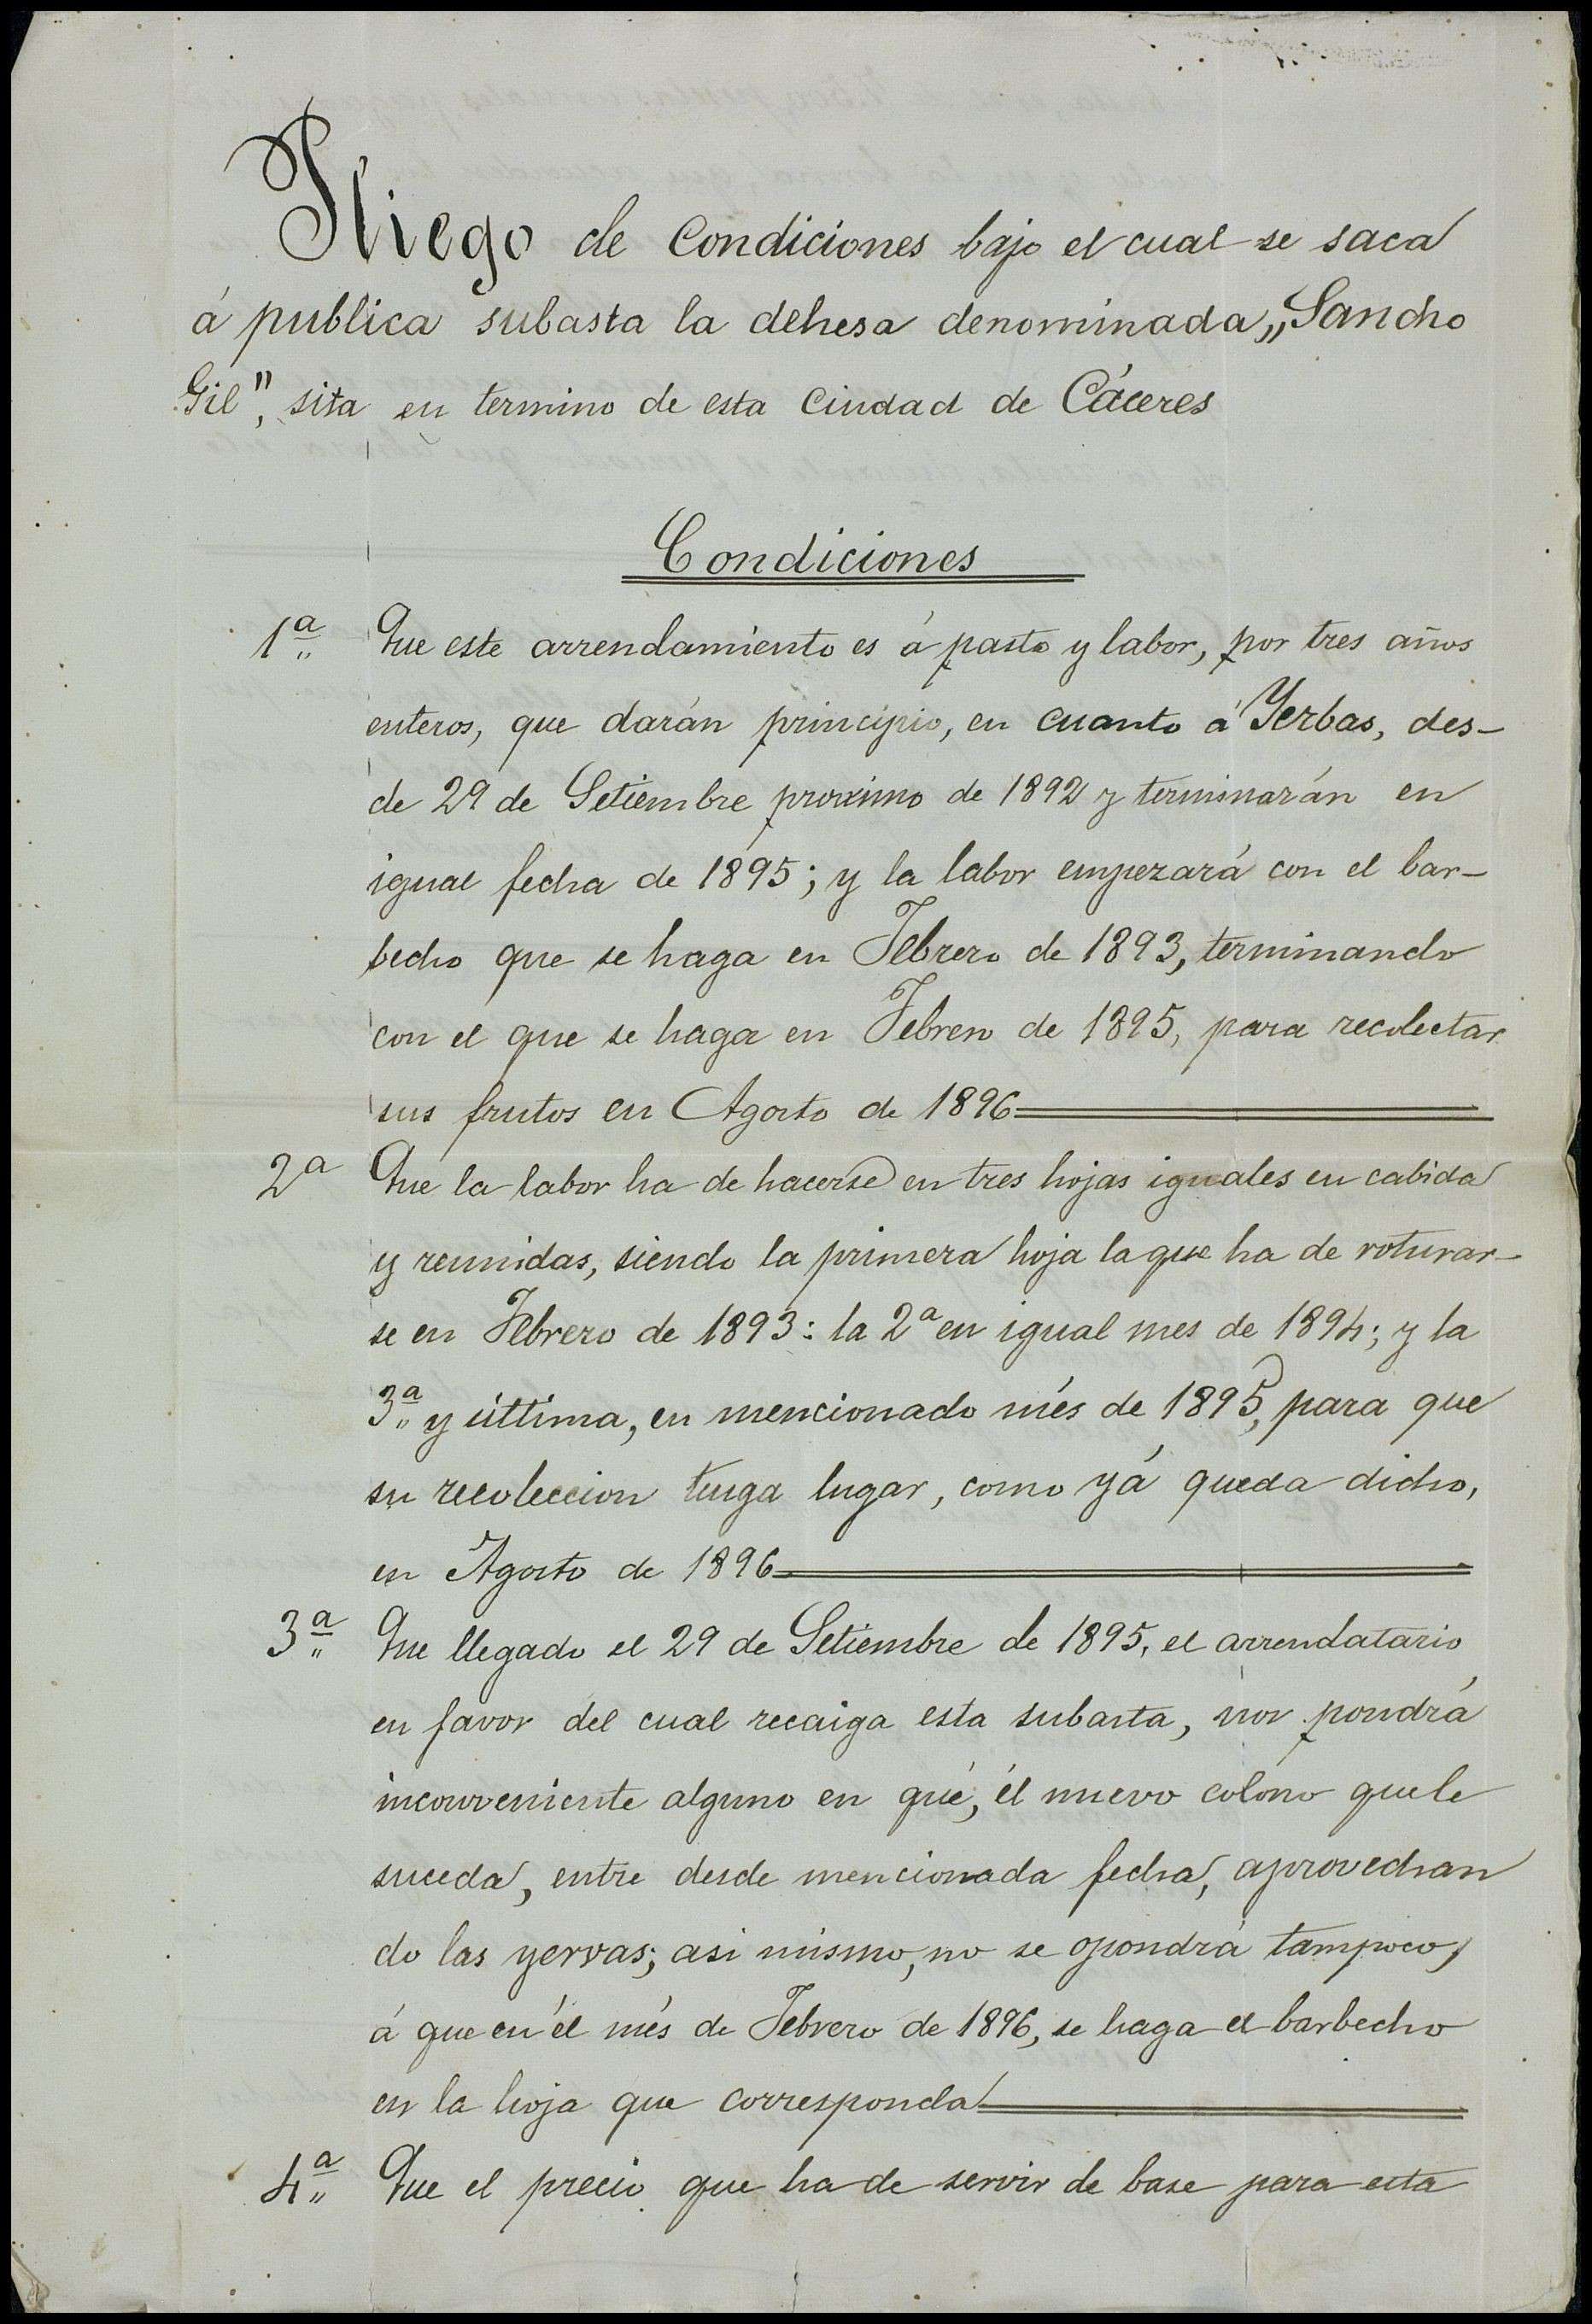 Pliego de Condiciones bajo el cual se saca
á publica subasta la dehesa denominada „Sancho
Gil”, sita en termino de esta Ciudad de Cáceres
Condiciones
1ª Que este arrendamiento es á pasto y labor, por tres años
enteros, que darán principio, en cuanto á Yerbas, des-
de 29 de Setiembre proximo de 1892 y terminarán en
igual fecha de 1895; y la labor empezará con el bar-
becho que se haga en Febrero de 1893, terminando
con el que se haga en Febrero de 1895, para recolectar
sus frutos en Agosto de 1896
2ª Que la labor ha de hacerse en tres hojas iguales en cabida
y reunidas, siendo la primera hoja la que ha de roturar-
se en Febrero de 1893: la 2ª en igual mes de 1894; y la
3ª y última, en mencionado més de 1895, para que
su recoleccion tenga lugar, como yá queda dicho,
en Agosto de 1896
3ª Que llegado el 29 de Setiembre de 1895, el arrendatario
en favor del cual recaiga esta subasta, no pondrá
inconveniente alguno en qué, él nuevo colono que le
suceda, entre desde mencionada fecha, aprovechan
do las yervas; asi mismo, no se opondrá tampoco,
á que en él més de Febrero de 1896, se haga el barbecho
en la hoja que corresponda
4ª Que el precio que ha de servir de base para esta